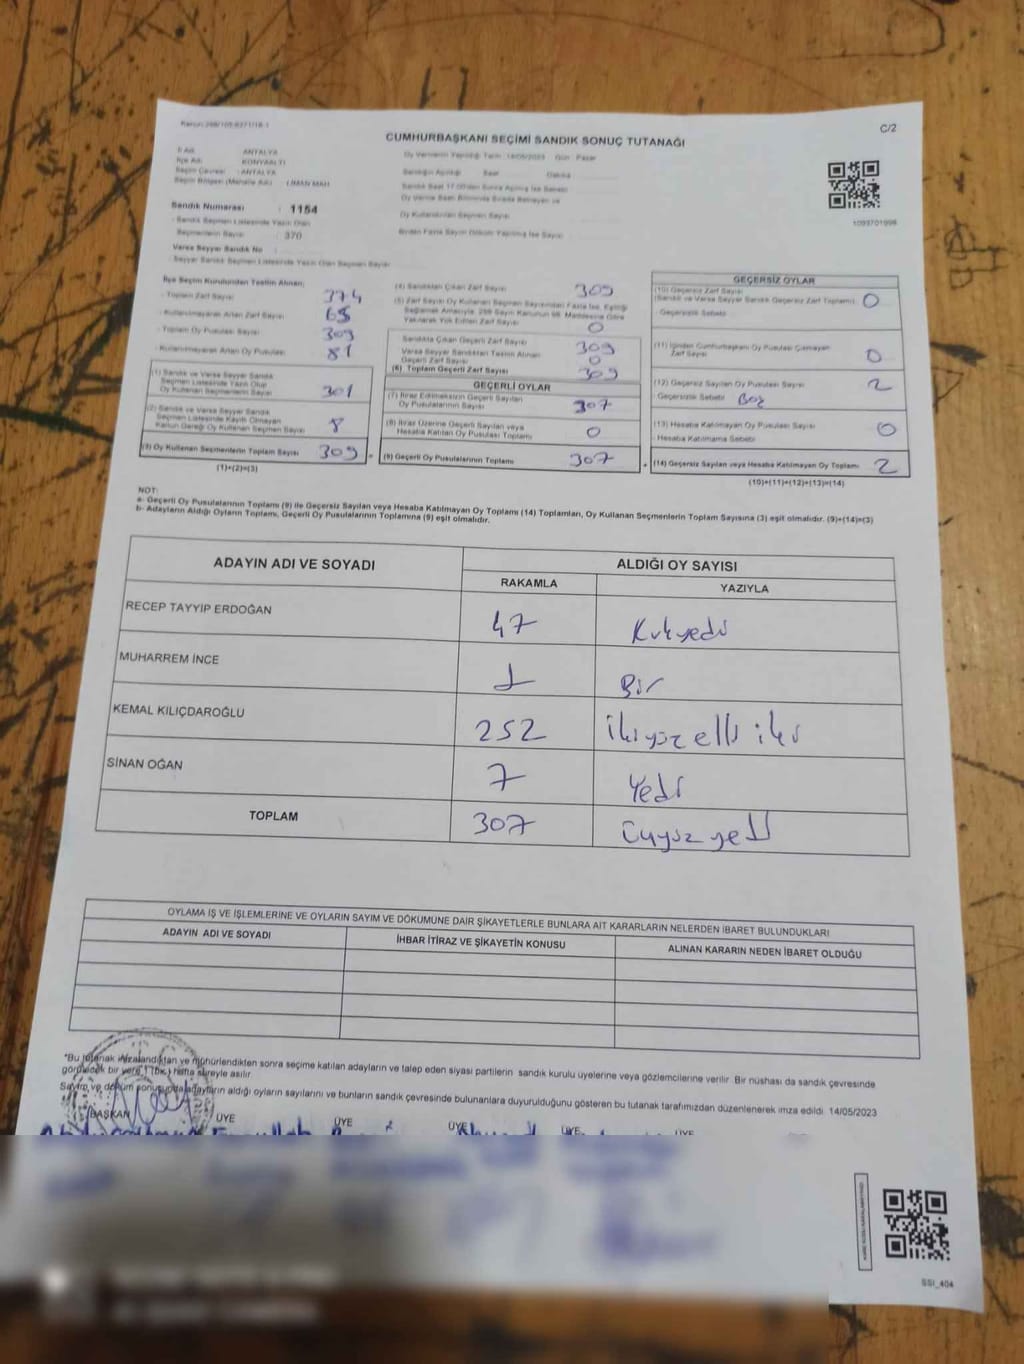 C/2
CUMHURBAŞKANI SEÇİMİ SANDIK SONUÇ TUTANAĞI
İl Adı : ANTALYA
İlçe Adı : KONYAALTI
Seçim Çevresi : ANTALYA
Seçim Bölgesi (Mahalle Adı) : LİMAN MAH
Sandık Numarası : 1154
Sandık Seçmen Listesinde Yazılı Olan
Seçmenlerin Sayısı : 370
Varsa Seyyar Sandık No
Seyyar Sandık Seçmen Listesinde Yazılı Olan Seçmen Sayısı
Oy Vermenin Yapıldığı Tarih : 14/05/2023 Gün : Pazar
Sandığın Açıldığı Saat Dakika
Oy Kullandırılan Seçmen Sayısı
Birden Fazla Sayım Döküm Yapılmış İse Sayısı
1093701998
İlçe Seçim Kurulundan Teslim Alınan;
- Toplam Zarf Sayısı 374
- Kullanılmayarak Artan Zarf Sayısı 65
- Toplam Oy Pusulası Sayısı 309
- Kullanılmayarak Artan Oy Pusulası 81
(1) Sandık ve Varsa Seyyar Sandık
Seçmen Listesinde Yazılı Olup
Oy Kullanan Seçmenlerin Sayısı 301
(2) Sandık ve Varsa Seyyar Sandık
Seçmen Listesinde Kayıtlı Olmayan
Kanun Gereği Oy Kullanan Seçmen Sayısı 8
(3) Oy Kullanan Seçmenlerin Toplam Sayısı 309 =
(1)+(2)=(3)
(4) Sandıktan Çıkan Zarf Sayısı 309
(5) Zarf Sayısı Oy Kullanan Seçmen Sayısından Fazla İse, Eşitliği
Sağlamak Amacıyla, 298 Sayılı Kanunun 98. Maddesine Göre
Yakılarak Yok Edilen Zarf Sayısı 0
Sandıkta Çıkan Geçerli Zarf Sayısı 309
Varsa Seyyar Sandıktan Teslim Alınan
Geçerli Zarf Sayısı 0
(6) Toplam Geçerli Zarf Sayısı 309
GEÇERLİ OYLAR
(7) İtiraz Edilmeksizin Geçerli Sayılan
Oy Pusulalarının Sayısı 307
(8) İtiraz Üzerine Geçerli Sayılan veya
Hesaba Katılan Oy Pusulası Toplamı 0
(9) Geçerli Oy Pusulalarının Toplamı 307 +
GEÇERSİZ OYLAR
(10) Geçersiz Zarf Sayısı
(Sandık ve Varsa Seyyar Sandık Geçersiz Zarf Toplamı) 0
Geçersizlik Sebebi
(11) İçinden Cumhurbaşkanı Oy Pusulası Çıkmayan
Zarf Sayısı 0
(12) Geçersiz Sayılan Oy Pusulası Sayısı 2
Geçersizlik Sebebi Boş
(13) Hesaba Katılmayan Oy Pusulası Sayısı 0
Hesaba Katılmama Sebebi
(14) Geçersiz Sayılan veya Hesaba Katılmayan Oy Toplamı 2
(10)+(11)+(12)+(13)=(14)
NOT:
a- Geçerli Oy Pusulalarının Toplamı (9) ile Geçersiz Sayılan veya Hesaba Katılmayan Oy Toplamı (14) Toplamları, Oy Kullanan Seçmenlerin Toplam Sayısına (3) eşit olmalıdır. (9)+(14)=(3)
b- Adayların Aldığı Oyların Toplamı, Geçerli Oy Pusulalarının Toplamına (9) eşit olmalıdır.
ADAYIN ADI VE SOYADI ALDIĞI OY SAYISI
RAKAMLA YAZIYLA
RECEP TAYYİP ERDOĞAN 47 Kırkyedi
MUHARREM İNCE 1 Bir
KEMAL KILIÇDAROĞLU 252 ikiyüz elli iki
SİNAN OĞAN 7 Yedi
TOPLAM 307 Üçyüz yedi
OYLAMA İŞ VE İŞLEMLERİNE VE OYLARIN SAYIM VE DÖKÜMÜNE DAİR ŞİKAYETLERLE BUNLARA AİT KARARLARIN NELERDEN İBARET BULUNDUKLARI
ADAYIN ADI VE SOYADI İHBAR İTİRAZ VE ŞİKAYETİN KONUSU ALINAN KARARIN NEDEN İBARET OLDUĞU
*Bu tutanak imzalandıktan ve mühürlendikten sonra seçime katılan adayların ve talep eden siyasi partilerin sandık kurulu üyelerine veya gözlemcilerine verilir. Bir nüshası da sandık çevresinde
görülecek bir yere 1 (bir) hafta süreyle asılır.
Sayım ve döküm sonucunda adayların aldığı oyların sayılarını ve bunların sandık çevresinde bulunanlara duyurulduğunu gösteren bu tutanak tarafımızdan düzenlenerek imza edildi. 14/05/2023
BAŞKAN ÜYE ÜYE ÜYE ÜYE ÜYE
SSI_404